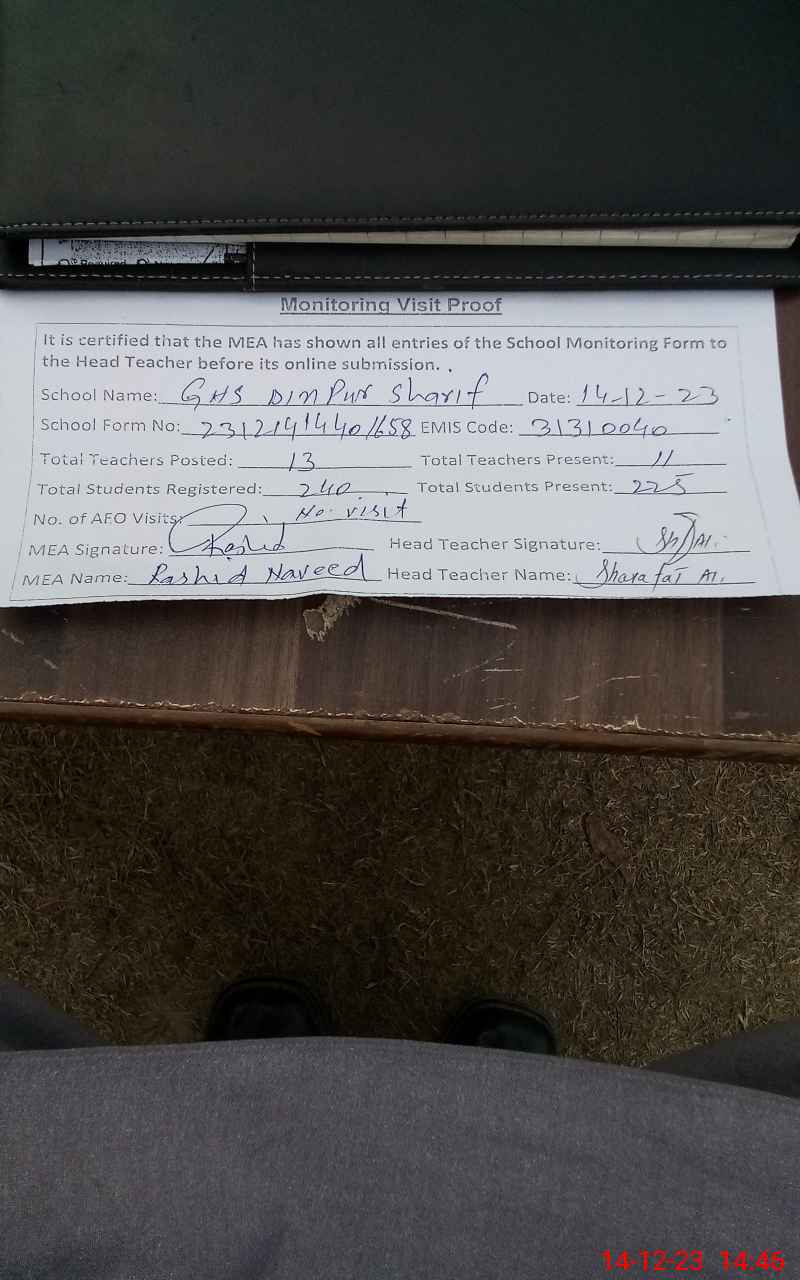 Monitoring Visit Proof
It is certified that the MEA has shown all entries of the School Monitoring Form to
the Head Teacher before its online submission.
School Name: GHS Din Pur Sharif Date: 14-12-23
School Form No: 23121414401658 EMIS Code: 31310040
Total Teachers Posted: 13 Total Teachers Present: 11
Total Students Registered: 240 Total Students Present: 225
No. of AEO Visits: No. visit
MEA Signature: Rashid Head Teacher Signature:
MEA Name: Rashid Naveed Head Teacher Name: Sharafat Ali
14-12-23 14:46